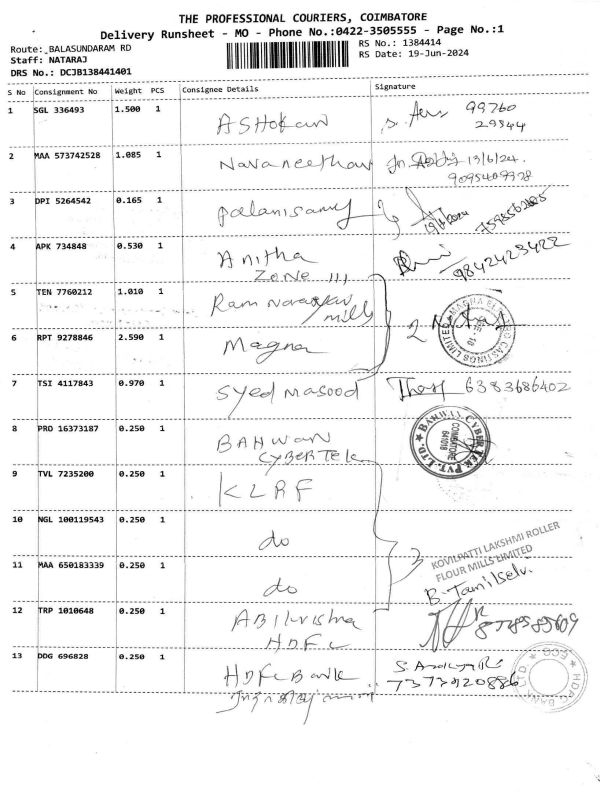 THE PROFESSIONAL COURIERS, COIMBATORE
Delivery Runsheet - MO - Phone No.:0422-3505555 - Page No.:1
Route: BALASUNDARAM RD
Staff: NATARAJ
DRS No.: DCJB138441401
RS No.: 1384414
RS Date: 19-Jun-2024
S No Consignment No Weight PCS Consignee Details Signature
1 SGL 336493 1.500 1 ASHOKAN 99760
29544
2 MAA 573742528 1.085 1 Navaneethan 19/6/24
3 DPI 5264542 0.165 1 palanisamy
4 APK 734848 0.530 1 Anitha 9842423422
ZONE III
5 TEN 7760212 1.010 1 Ram Narayan
mills
6 RPT 9278846 2.590 1 Magna 2
MAGNA ELECTRO CASTINGS LIMITED
7 TSI 4117843 0.970 1 syed masood 6383686402
8 PRO 16373187 0.250 1 BAHWAN
CYBERTEK
BAHWAN CYBERTEK PVT. LTD.
COIMBATORE
641018
9 TVL 7235200 0.250 1 KLRF
10 NGL 100119543 0.250 1 do
3
KOVILPATTI LAKSHMI ROLLER
FLOUR MILLS LIMITED
11 MAA 650183339 0.250 1 do B. Tamilselvi
12 TRP 1010648 0.250 1 ABIkrishna
HDFC
13 DDG 696828 0.250 1 HDFC Bank
7373920886
HDFC BANK LTD